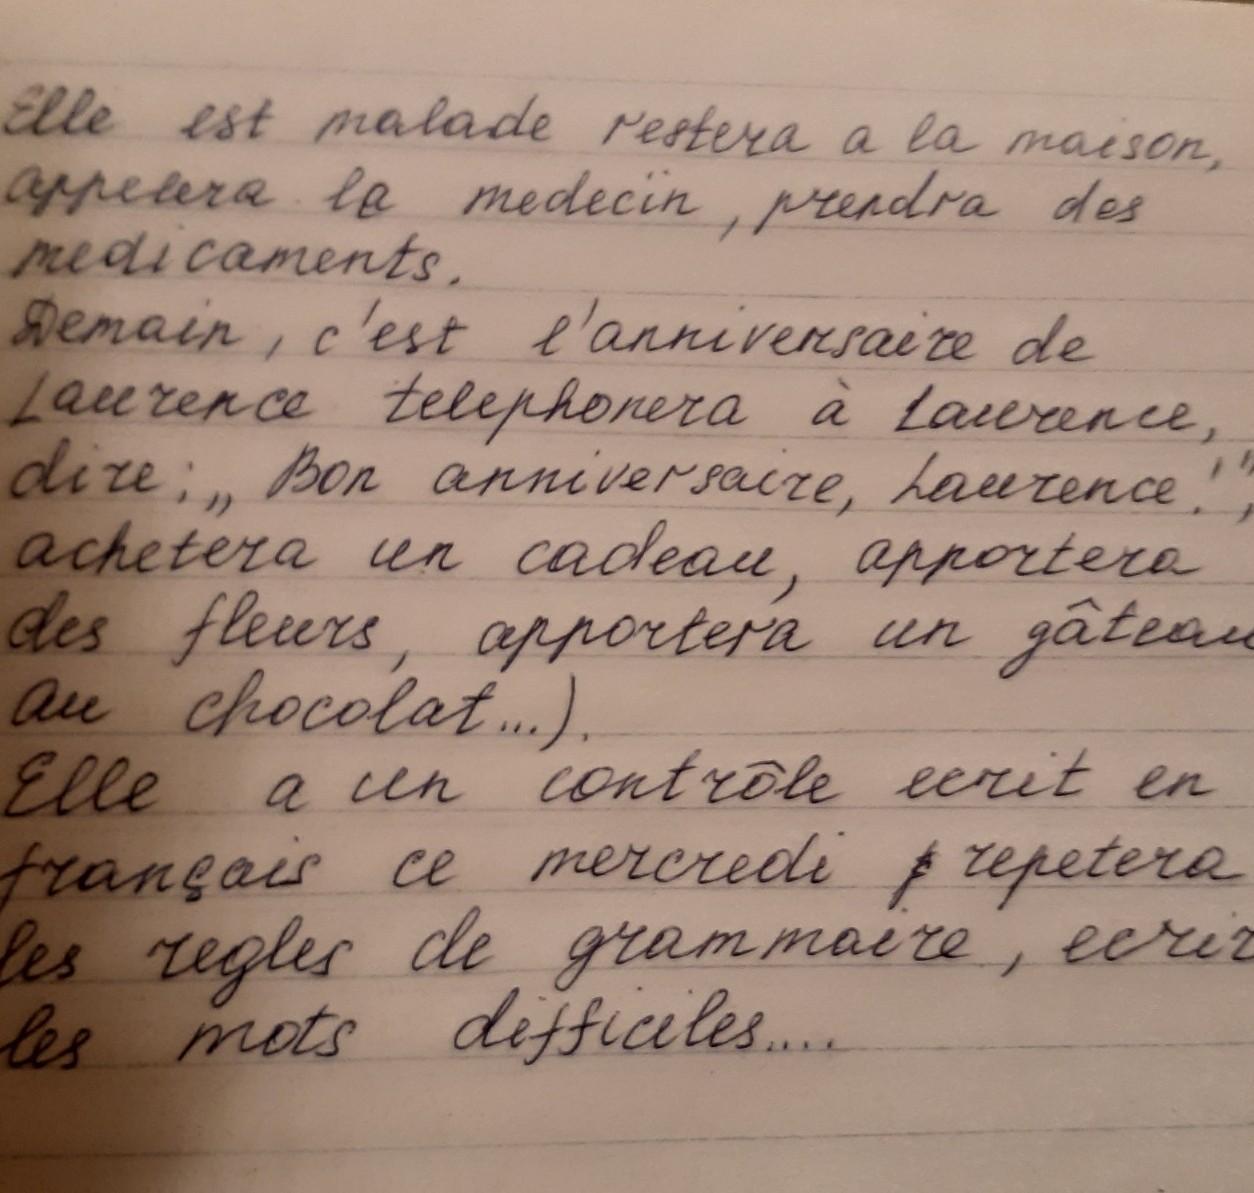 Elle est malade restera a la maison,
appelera la medecin, prendra des
medicaments.
Demain, c'est l'anniversaire de
Laurence telephonera à Laurence,
dire: „Bon anniversaire, Laurence!",
achetera un cadeau, apportera
des fleurs, apportera un gâteau
au chocolat...).
Elle a un contrôle ecrit en
français ce mercredi repetera
les regles de grammaire, ecrir
les mots difficiles....